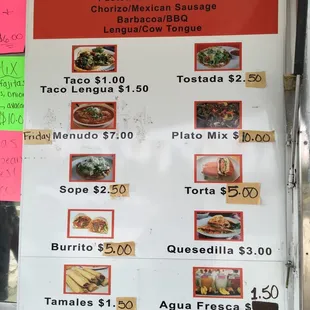 Chorizo/Mexican Sausage
Barbacoa/BBQ
Lengua/Cow Tongue
Taco $1.00
Taco Lengua $1.50
Tostada $2.50
Friday Menudo $7.00
Plato Mix $10.00
Sope $2.50
Torta $5.00
Burrito $5.00
Quesedilla $3.00
Tamales $1.50
Agua Fresca $1.50